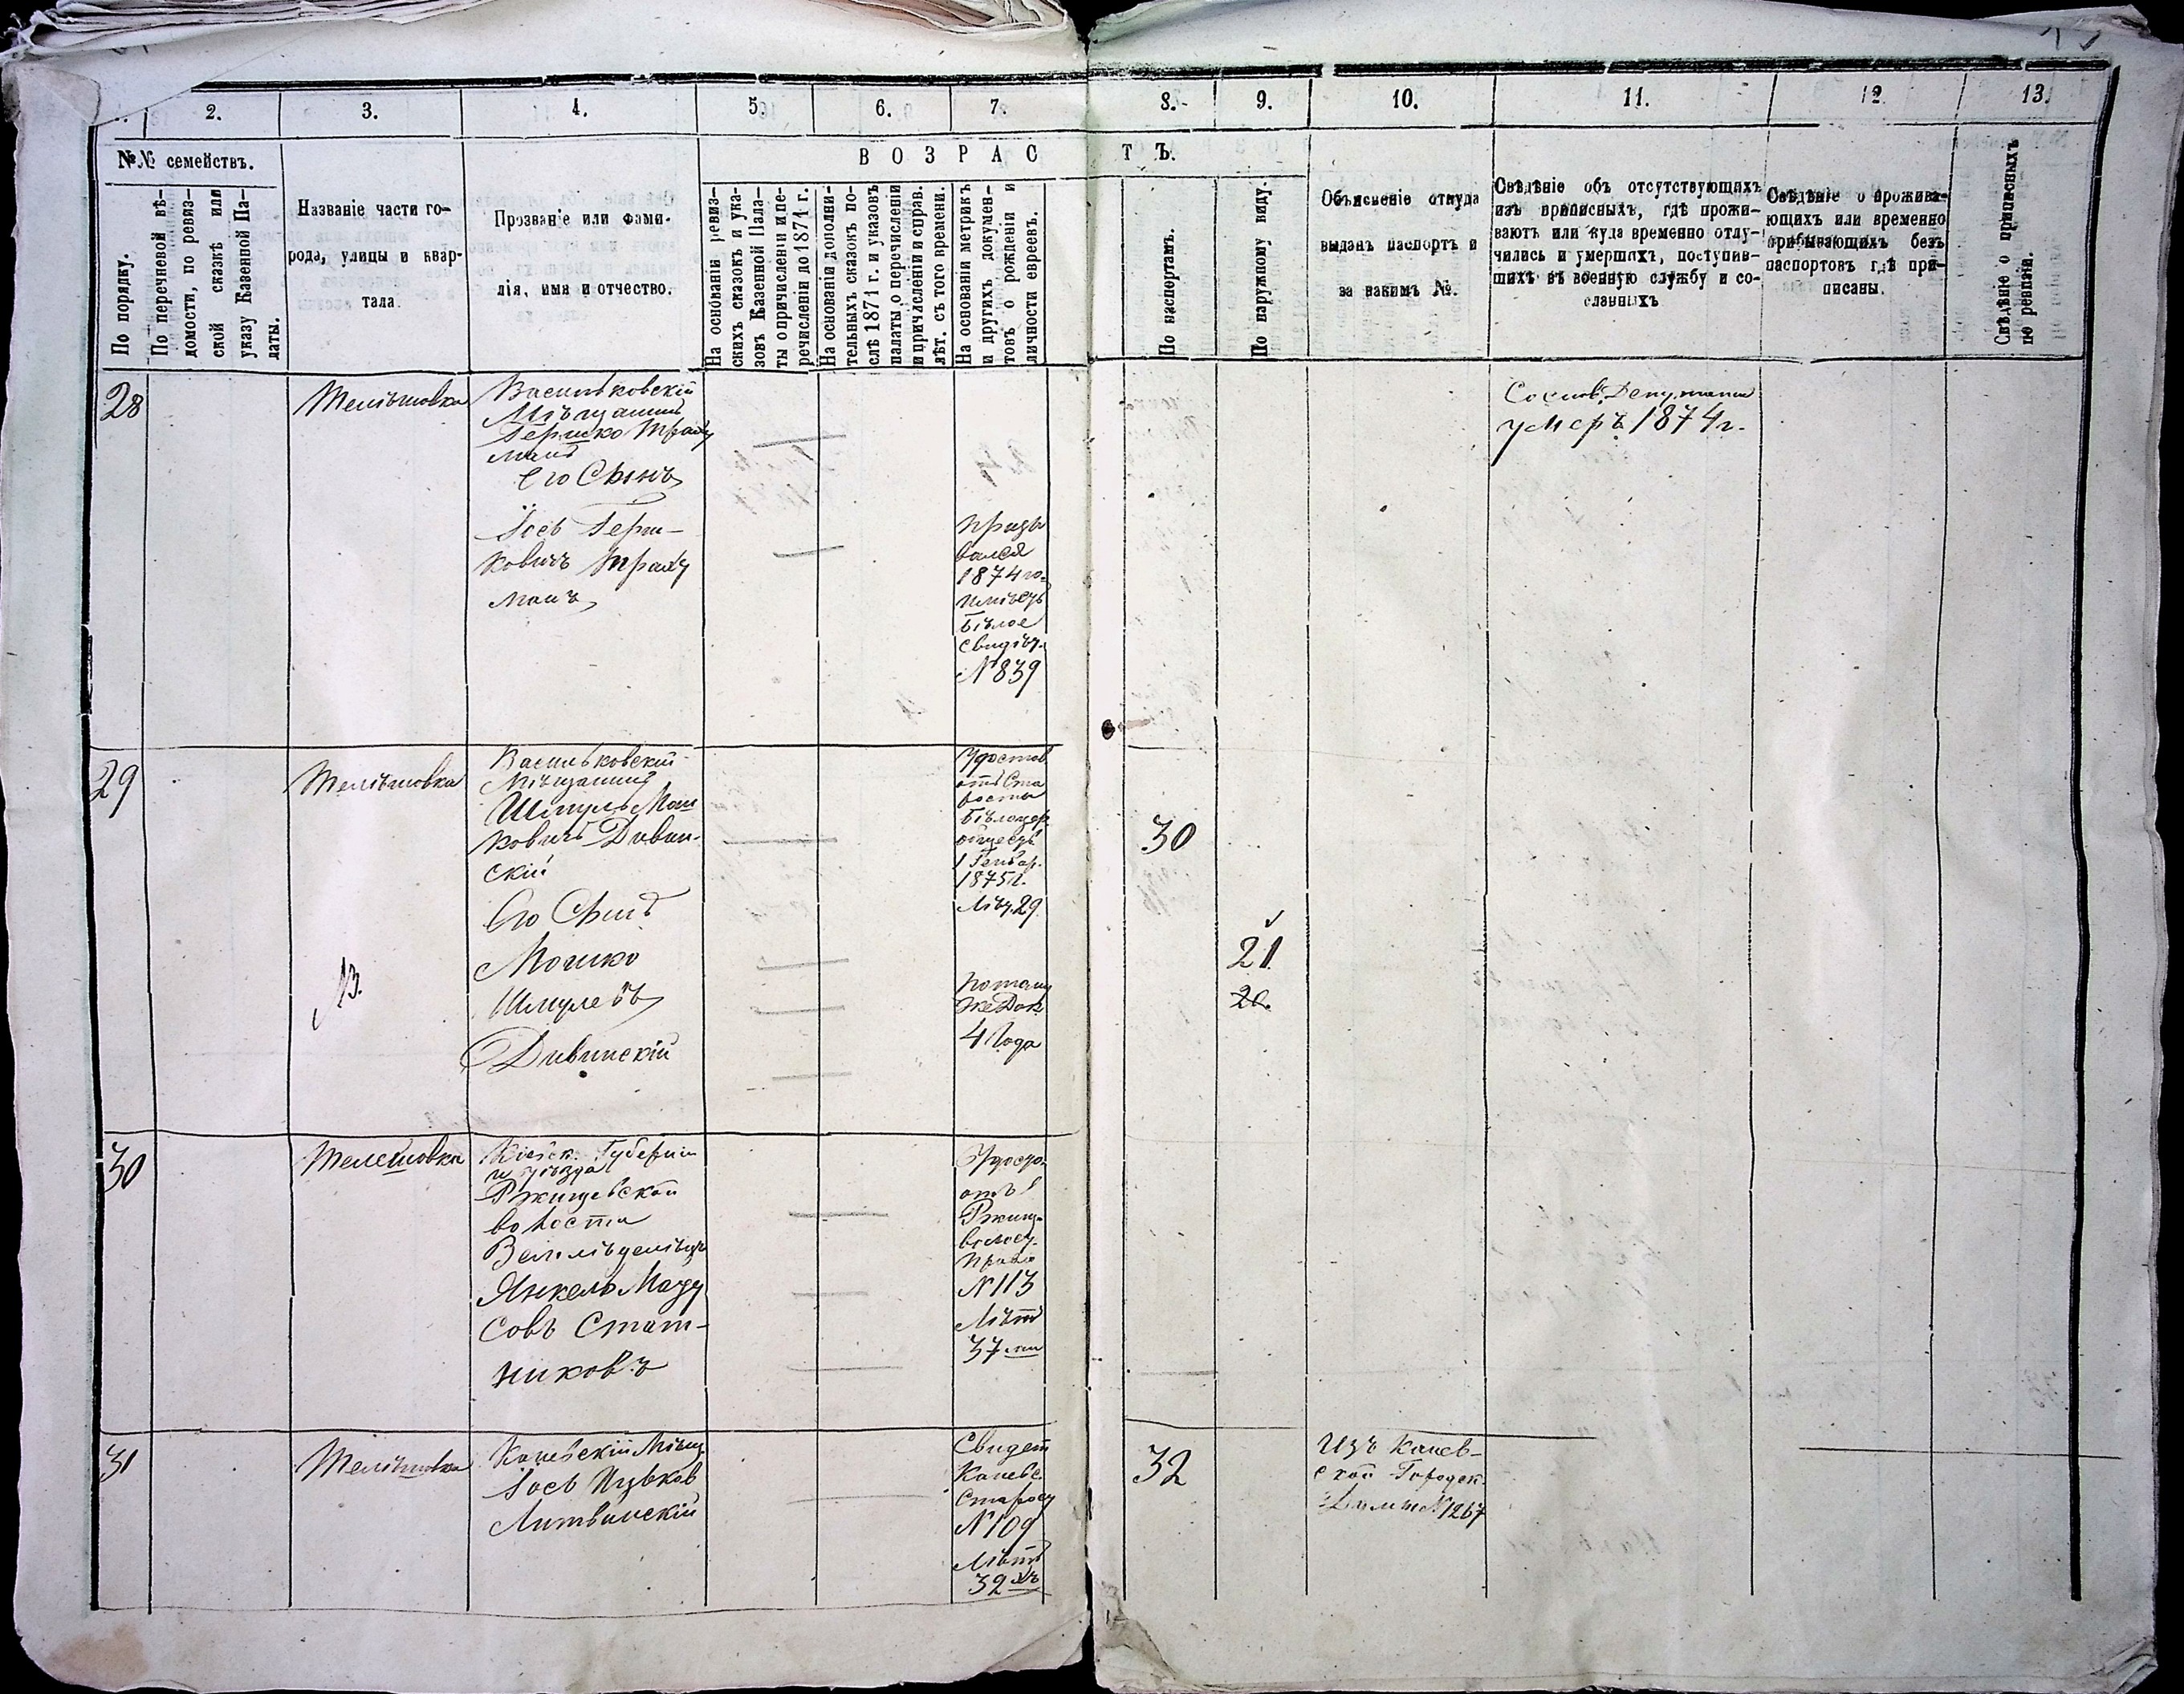 2.
3.
4.
5.
6.
7.
8.
9.
10.
11.
12
13.
№№ семействъ.
По порядку.
По перечневой вѣ-
домости, по ревиз-
ской сказкѣ или
указу Казенной Па-
латы.
Названіе части го-
рода, улицы и квар-
тала.
Прозваніе или фами-
лія, имя и отчество.
ВОЗРАСТЪ.
На основаніи ревиз-
скихъ сказокъ и ука-
зовъ Казенной Пала-
ты о причисленіи и пе-
речисленіи до 1871 г.
На основаніи дополни-
тельныхъ сказокъ по-
слѣ 1871 г. и указовъ
палаты о перечисленіи
и причисленіи и справ.
лѣт. съ того времени.
На основаніи метрикъ
и другихъ докумен-
товъ о рожденіи и
личности евреевъ.
По паспортамъ.
По наружному виду.
Объясненіе откуда
выданъ паспортъ и
за какимъ №.
Свѣдѣніе объ отсутствующихъ
изъ приписныхъ, гдѣ прожи-
ваютъ или куда временно отлу-
чились и умершихъ, поступив-
шихъ въ военную службу и со-
сланныхъ
Свѣдѣніе о прожива-
ющихъ или временно
пребывающихъ безъ
паспортовъ гдѣ при-
писаны.
Свѣдѣніе о приписныхъ
по ревизіи.
28
Телѣшовка
Васильковскій
Мѣщанинъ
Гершко Трахт
манъ
Его Сынъ
Іосъ Герш-
ковичъ Трахт
манъ
Призы
вался
1874 го.
Имѣетъ
Бѣлое
свидѣт.
№ 839
умеръ 1874 г.
29
Телѣшовка
Васильковскій
Мѣщанинъ
Шмуль Мош
ковичъ Дивин-
скій
Его Сынъ
Мошко
Шмулевъ
Дивинскій
Удостов
отъ Ста
росты
Бѣлоцер
общест
1 Генвар.
1875 г.
Лѣт. 29.
потому
же Док.
4 Года
30
21
20.
30
Телешовка
Кіевск. Губерніи
и уѣзда
Ржищевской
волости
Землѣделецъ
Янкель
совъ Стат-
никовъ
Удосто.
отъ
Ржищ-
волос.
Прав.
№ 113
Лѣтъ
37 ми
31
Телѣшовка
Каневскій Мѣщ
Іось Ицьков
Литвинскій
Свидет
Каневс
Старос
№ 109
Лѣтъ
32 хъ
32
Изъ Канев-
ской Городск.
Думы № 1267